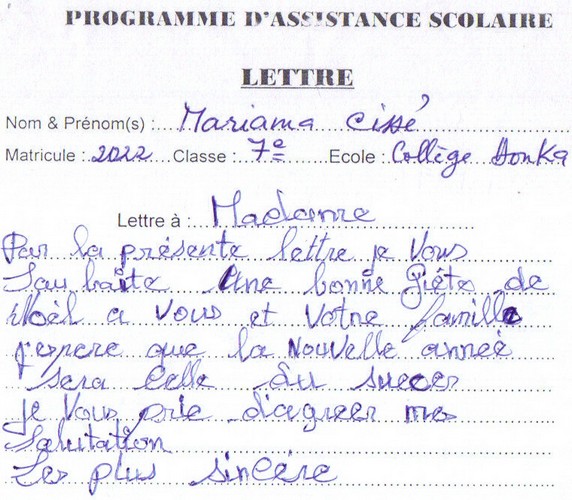 PROGRAMME D'ASSISTANCE SCOLAIRE
LETTRE
Nom & Prénom(s) : Mariama Cissé
Matricule : 2022 Classe : 7e Ecole : Collège Donka
Lettre à : Madame
Par la présente lettre je Vous
Souhaite Une bonne fiête de
Noèl a Vous et Votre famille
j'espere que la Nouvelle année
sera celle du succer
je Vous prie d'agreer mes
Salutation
Les plus sincère